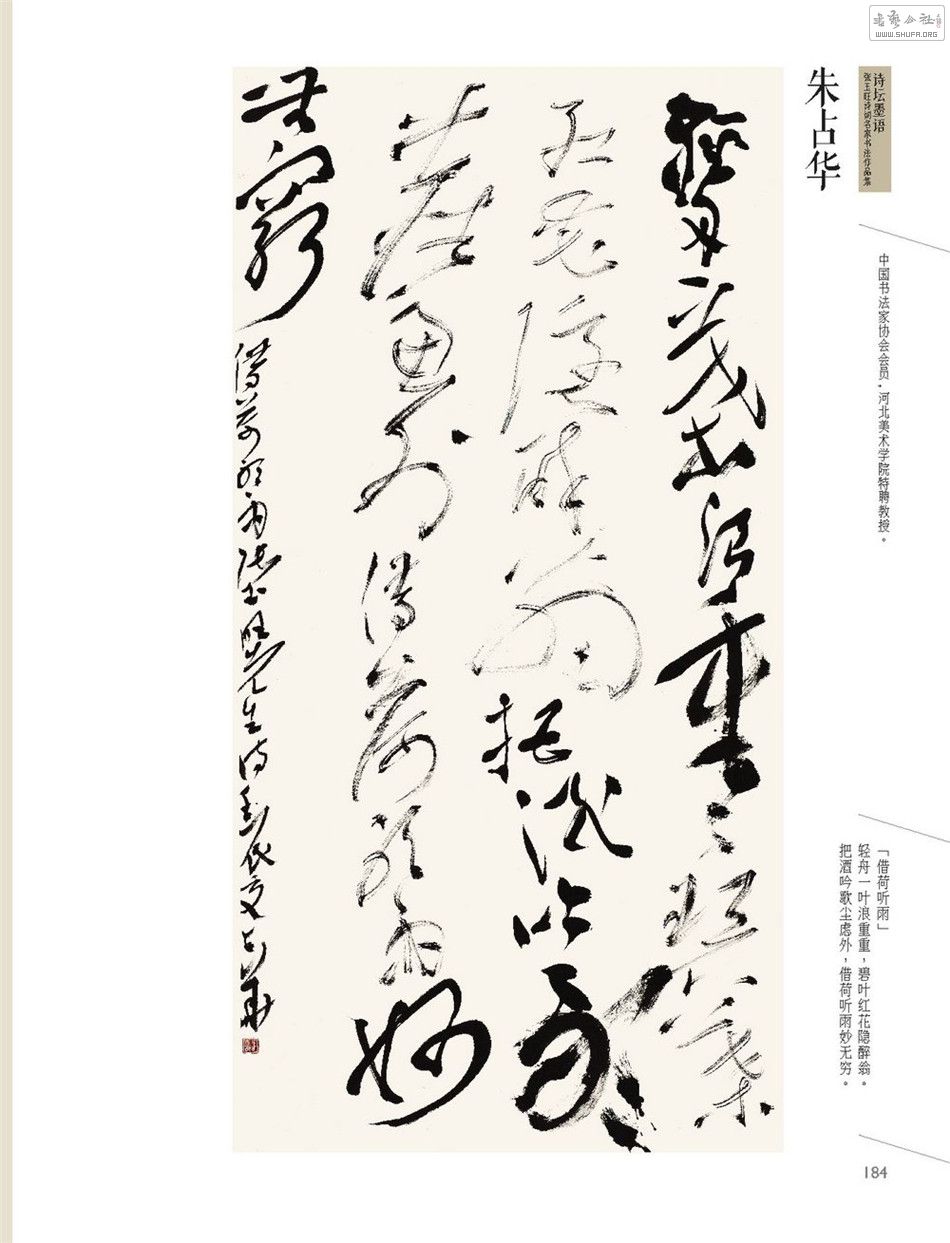 书艺公社
WWW.SHUFA.ORG
诗坛墨语
张玉旺诗词名家书法作品集
朱占华
中国书法家协会会员，河北美术学院特聘教授。
「借荷听雨」
轻舟一叶浪重重，碧叶红花隐醉翁。
把酒吟歌尘虑外，借荷听雨妙无穷。
輕舟一葉浪重重碧葉
紅花隱醉翁把酒吟歌
塵慮外借荷聽雨妙
無窮
借荷聽雨張玉旺先生詩
占華
184